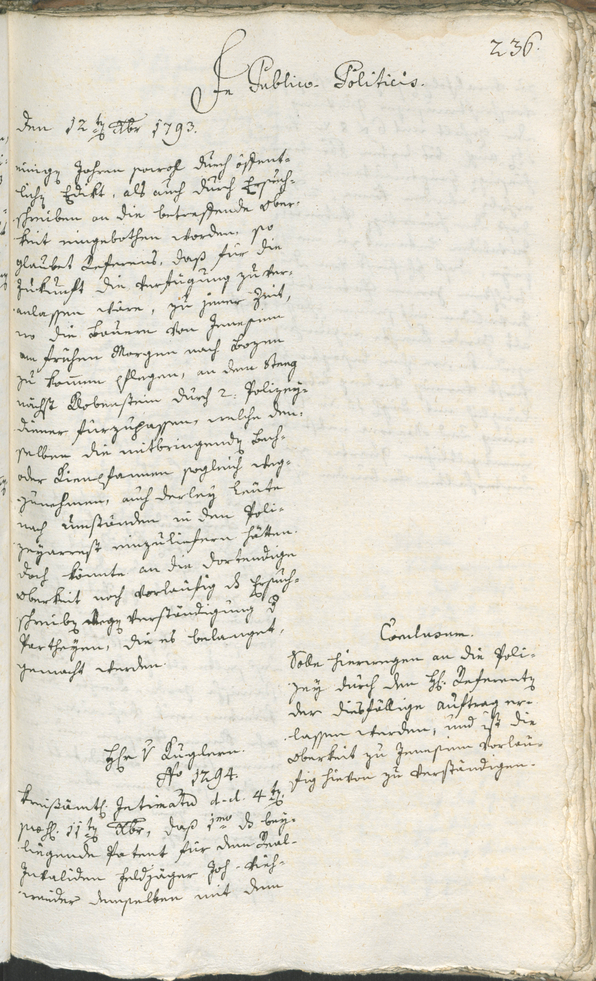 236.
In Publico-Politicis.
den 12 ten Xbr 1793.
einigen Jahren sowohl durch öffent-
lichen Edikt, als auch durch Ersuch-
schreiben an die betreffende Ober-
keit eingebothen worden, so
glaubet Referens, daß für die
Zukunft die Verfügung zu ver-
anlassen wäre, zu jener Zeit,
wo die Bauern von Jenesien
am frühen Morgen nach Bozen
zu kommen pflegen, an dem Steeg
nächst Klobenstein durch 2: Polizey-
diener fürzupassen, welche den-
selben die mitbringenden Bech-
oder Kienpfannen sogleich weg-
zunehmen, auch derley Leute
nach Umständen in den Poli-
zeyarrest einzuliefern hätten.
doch könnte an die dortendige
Oberkeit noch vorläufig ds Ersuch-
schreiben wegen Verständigung d
Partheyen, die es belanget,
gemacht werden.
Conclusum.
Solle hierwegen an die Poli-
zey durch den H: Referenten
der diesfällige Auftrag er-
lassen werden, und ist die
Oberkeit zu Jenesien vorläu-
fig hievon zu verständigen.
Hr v Kuglern.
No 1294.
Kreisämtl: Intimatum d. d. 4 ten,
praes: 11 ten Xbr, daß 1mo ds bey-
liegende Patent für den Real-
Invaliden Feldjäger Joh.
demselben mit dem